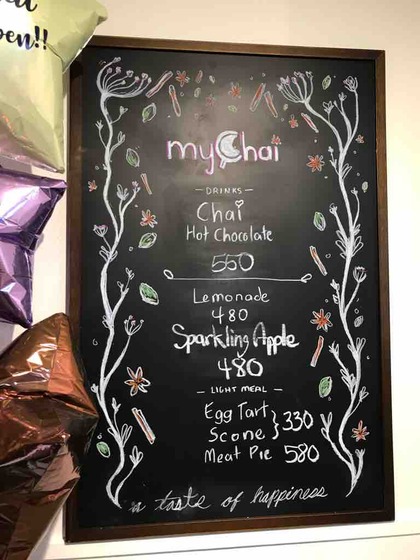 open!!
myChai
— DRINKS —
Chai
Hot Chocolate
550
Lemonade
480
Sparkling Apple
480
— LIGHT MEAL —
Egg Tart
Scone } 330
Meat Pie 580
a taste of happiness